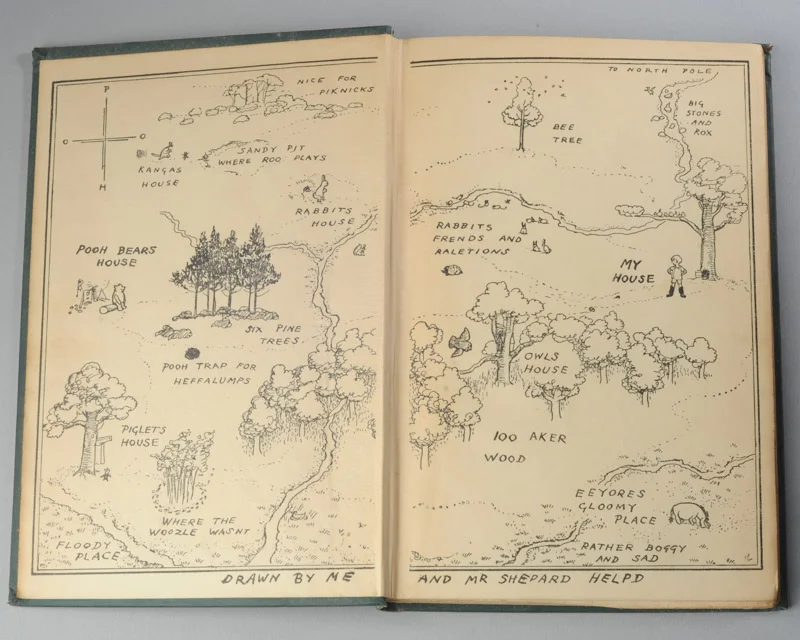 NICE FOR
PIKNICKS
P
O
O
H
KANGAS
HOUSE
SANDY PIT
WHERE ROO PLAYS
RABBITS
HOUSE
POOH BEARS
HOUSE
SIX PINE
TREES
POOH TRAP FOR
HEFFALUMPS
PIGLETS
HOUSE
WHERE THE
WOOZLE WASNT
FLOODY
PLACE
TO NORTH POLE
BIG
STONES
AND
ROX
BEE
TREE
RABBITS
FRENDS AND
RALETIONS
MY
HOUSE
OWLS
HOUSE
100 AKER
WOOD
EEYORES
GLOOMY
PLACE
RATHER BOGGY
AND SAD
DRAWN BY ME AND MR SHEPARD HELPD